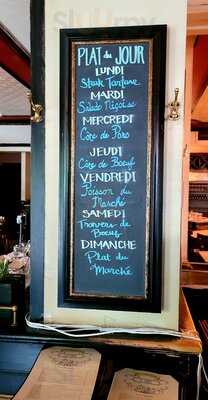 PLAT du JOUR
LUNDI
Steak Tartare
MARDI
Salade Niçoise
MERCREDI
Côte de Porc
JEUDI
Côte de Boeuf
VENDREDI
Poisson du
Marché
SAMEDI
Travers de
Boeuf
DIMANCHE
Plat du
Marché